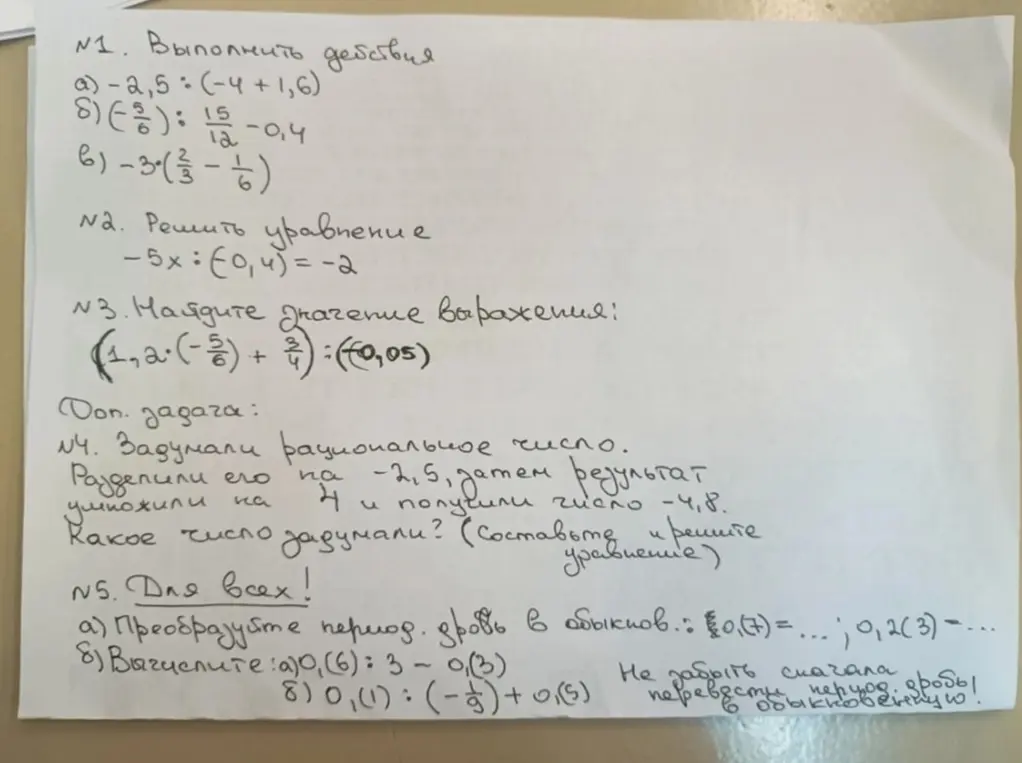 №1. Выполнить действия
а) -2,5 : (-4 + 1,6)
б) (-5/6) : 15/12 - 0,4
в) -3·(2/3 - 1/6)
№2. Решить уравнение
-5x : (-0,4) = -2
№3. Найдите значение выражения:
(1,2·(-5/6) + 3/4) : (-0,05)
Доп. задача:
№4. Задумали рациональное число.
Разделили его на -2,5, затем результат
умножили на 4 и получили число -4,8.
Какое число задумали? (Составьте и решите
уравнение)
№5. Для всех!
а) Преобразуйте период. дробь в обыкнов.: 0,(7) = ...; 0,2(3) = ...
б) Вычислите: а) 0,(6) : 3 - 0,(3)
б) 0,(1) : (-1/9) + 0,(5)
Не забыть сначала
перевести период. дробь
в обыкновенную!